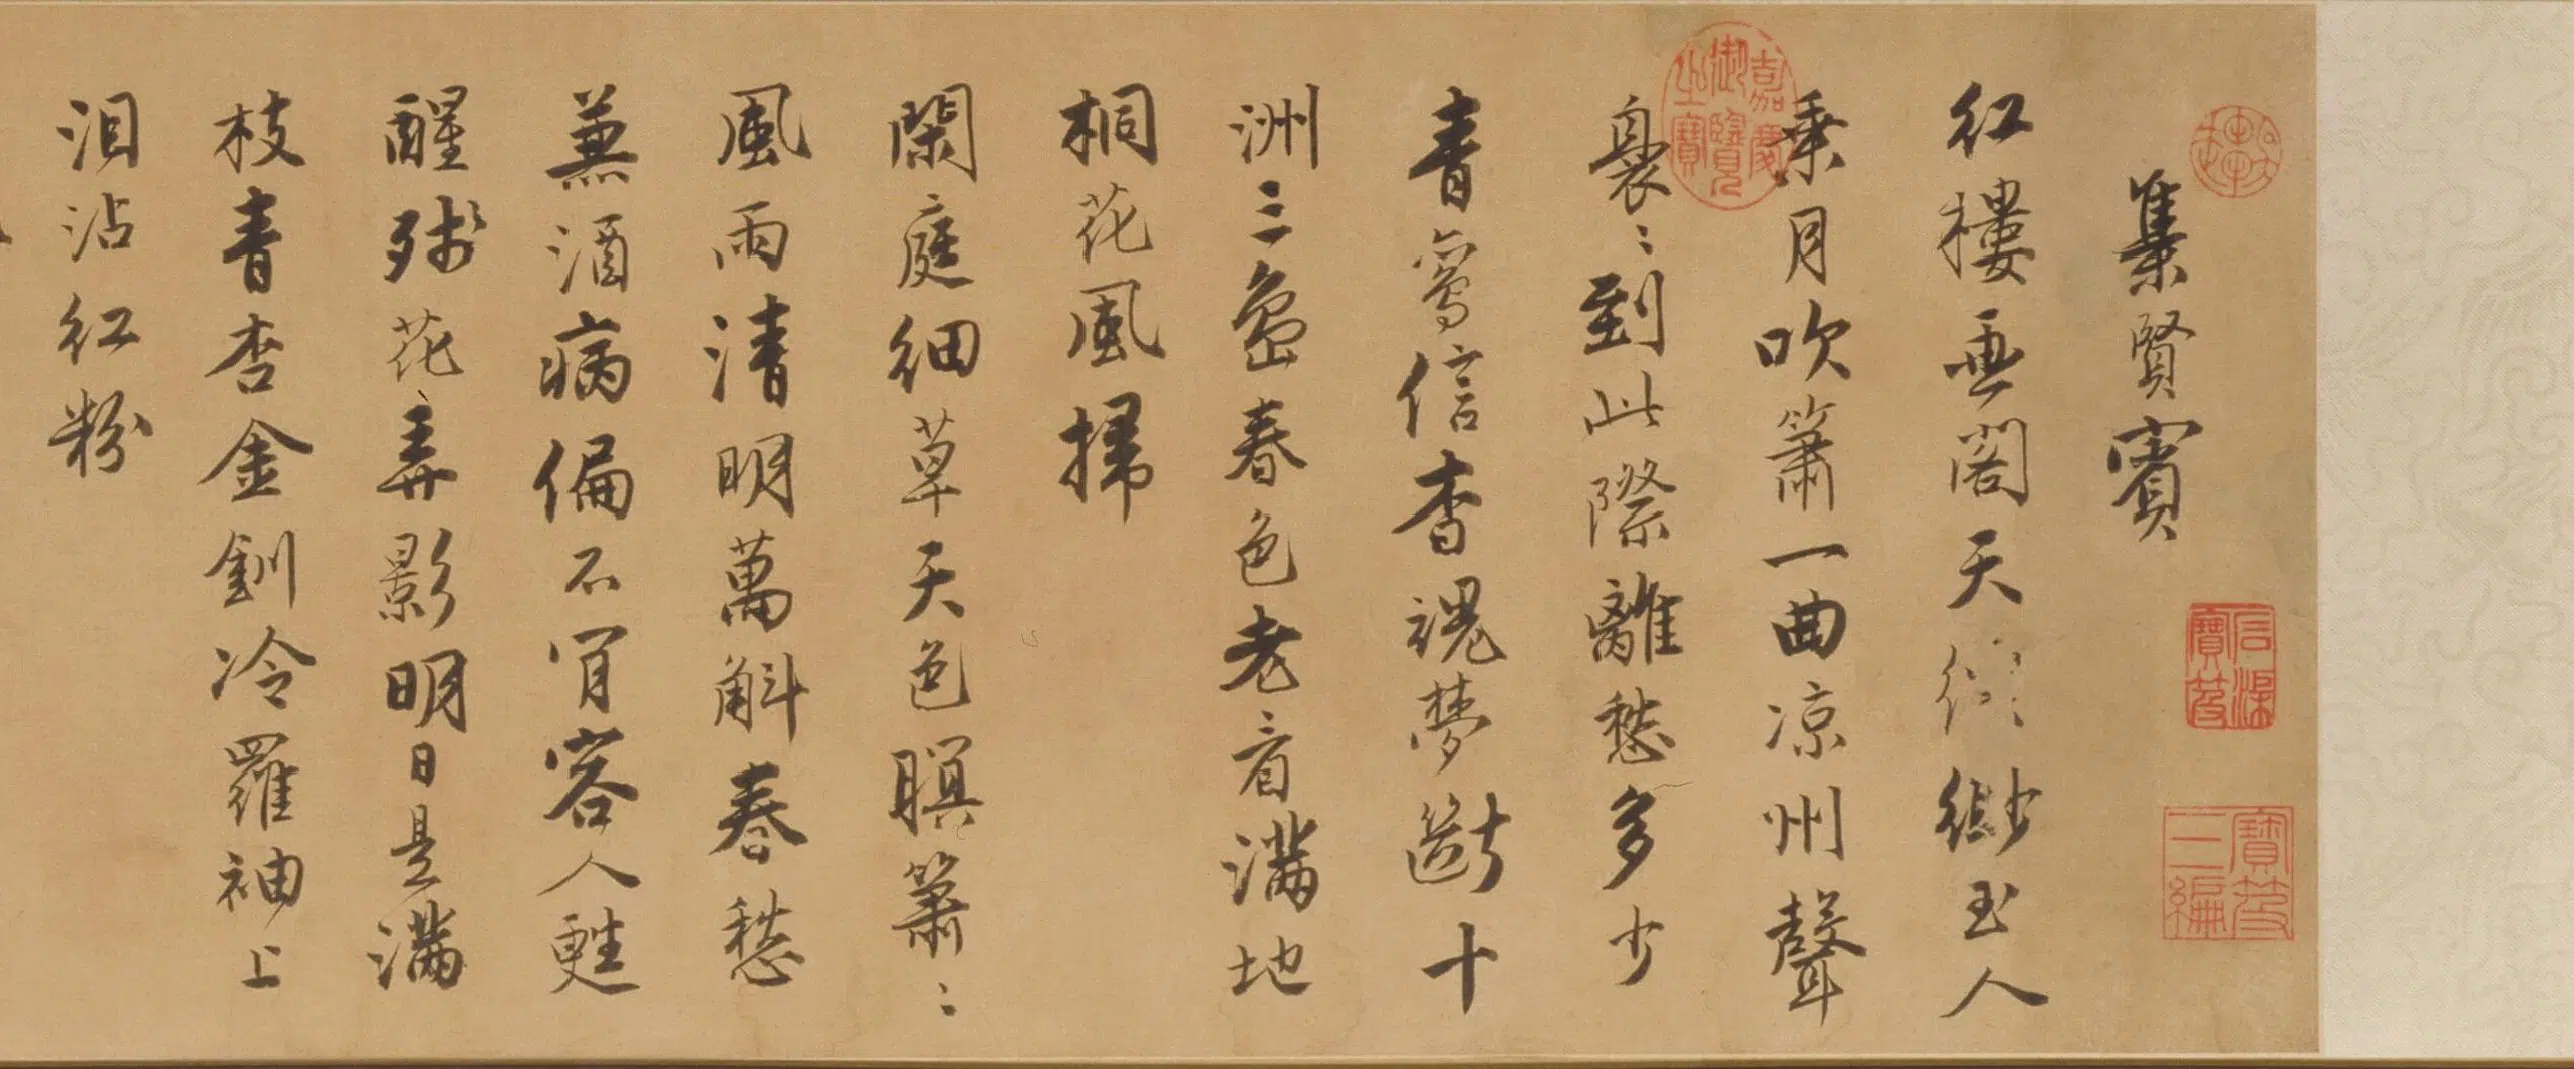 集賢賓
紅樓畫閣天縹緲玉人
乗月吹簫一曲凉州聲
裊〻到此際離愁多少
青鸞信杳魂夢斷十
洲三島春色老看滿地
桐花風掃
閑庭細草天色暝簫〻
風雨清明萬斛春愁
兼酒病偏不肎容人甦
醒殘花弄影明日是滿
枝青杏金釧冷羅袖上
泪沾紅粉
嘉慶御覽之寶
寶笈三編